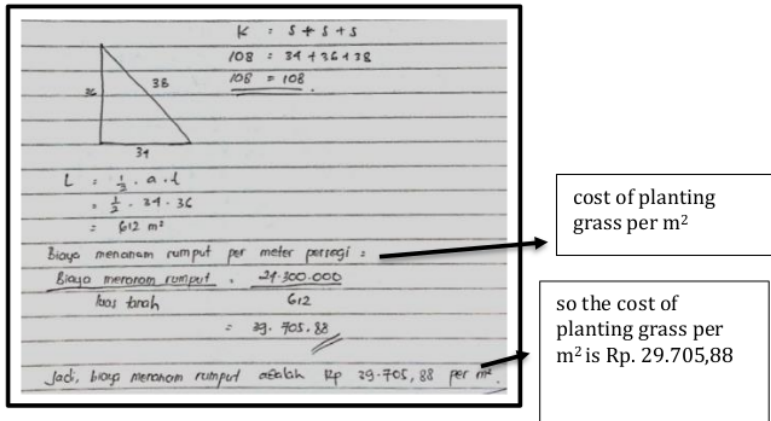 K : S + S + S
108 : 34 + 36 + 38
108 = 108
36
38
34
L : 1/2 . a . t
= 1/2 . 34 . 36
= 612 m²
Biaya menanam rumput per meter persegi :
Biaya menanam rumput = 24.300.000
luas tanah 612
= 39.705.88
Jadi, biaya menanam rumput adalah Rp 39.705,88 per m².
cost of planting
grass per m²
so the cost of
planting grass per
m² is Rp. 29.705,88